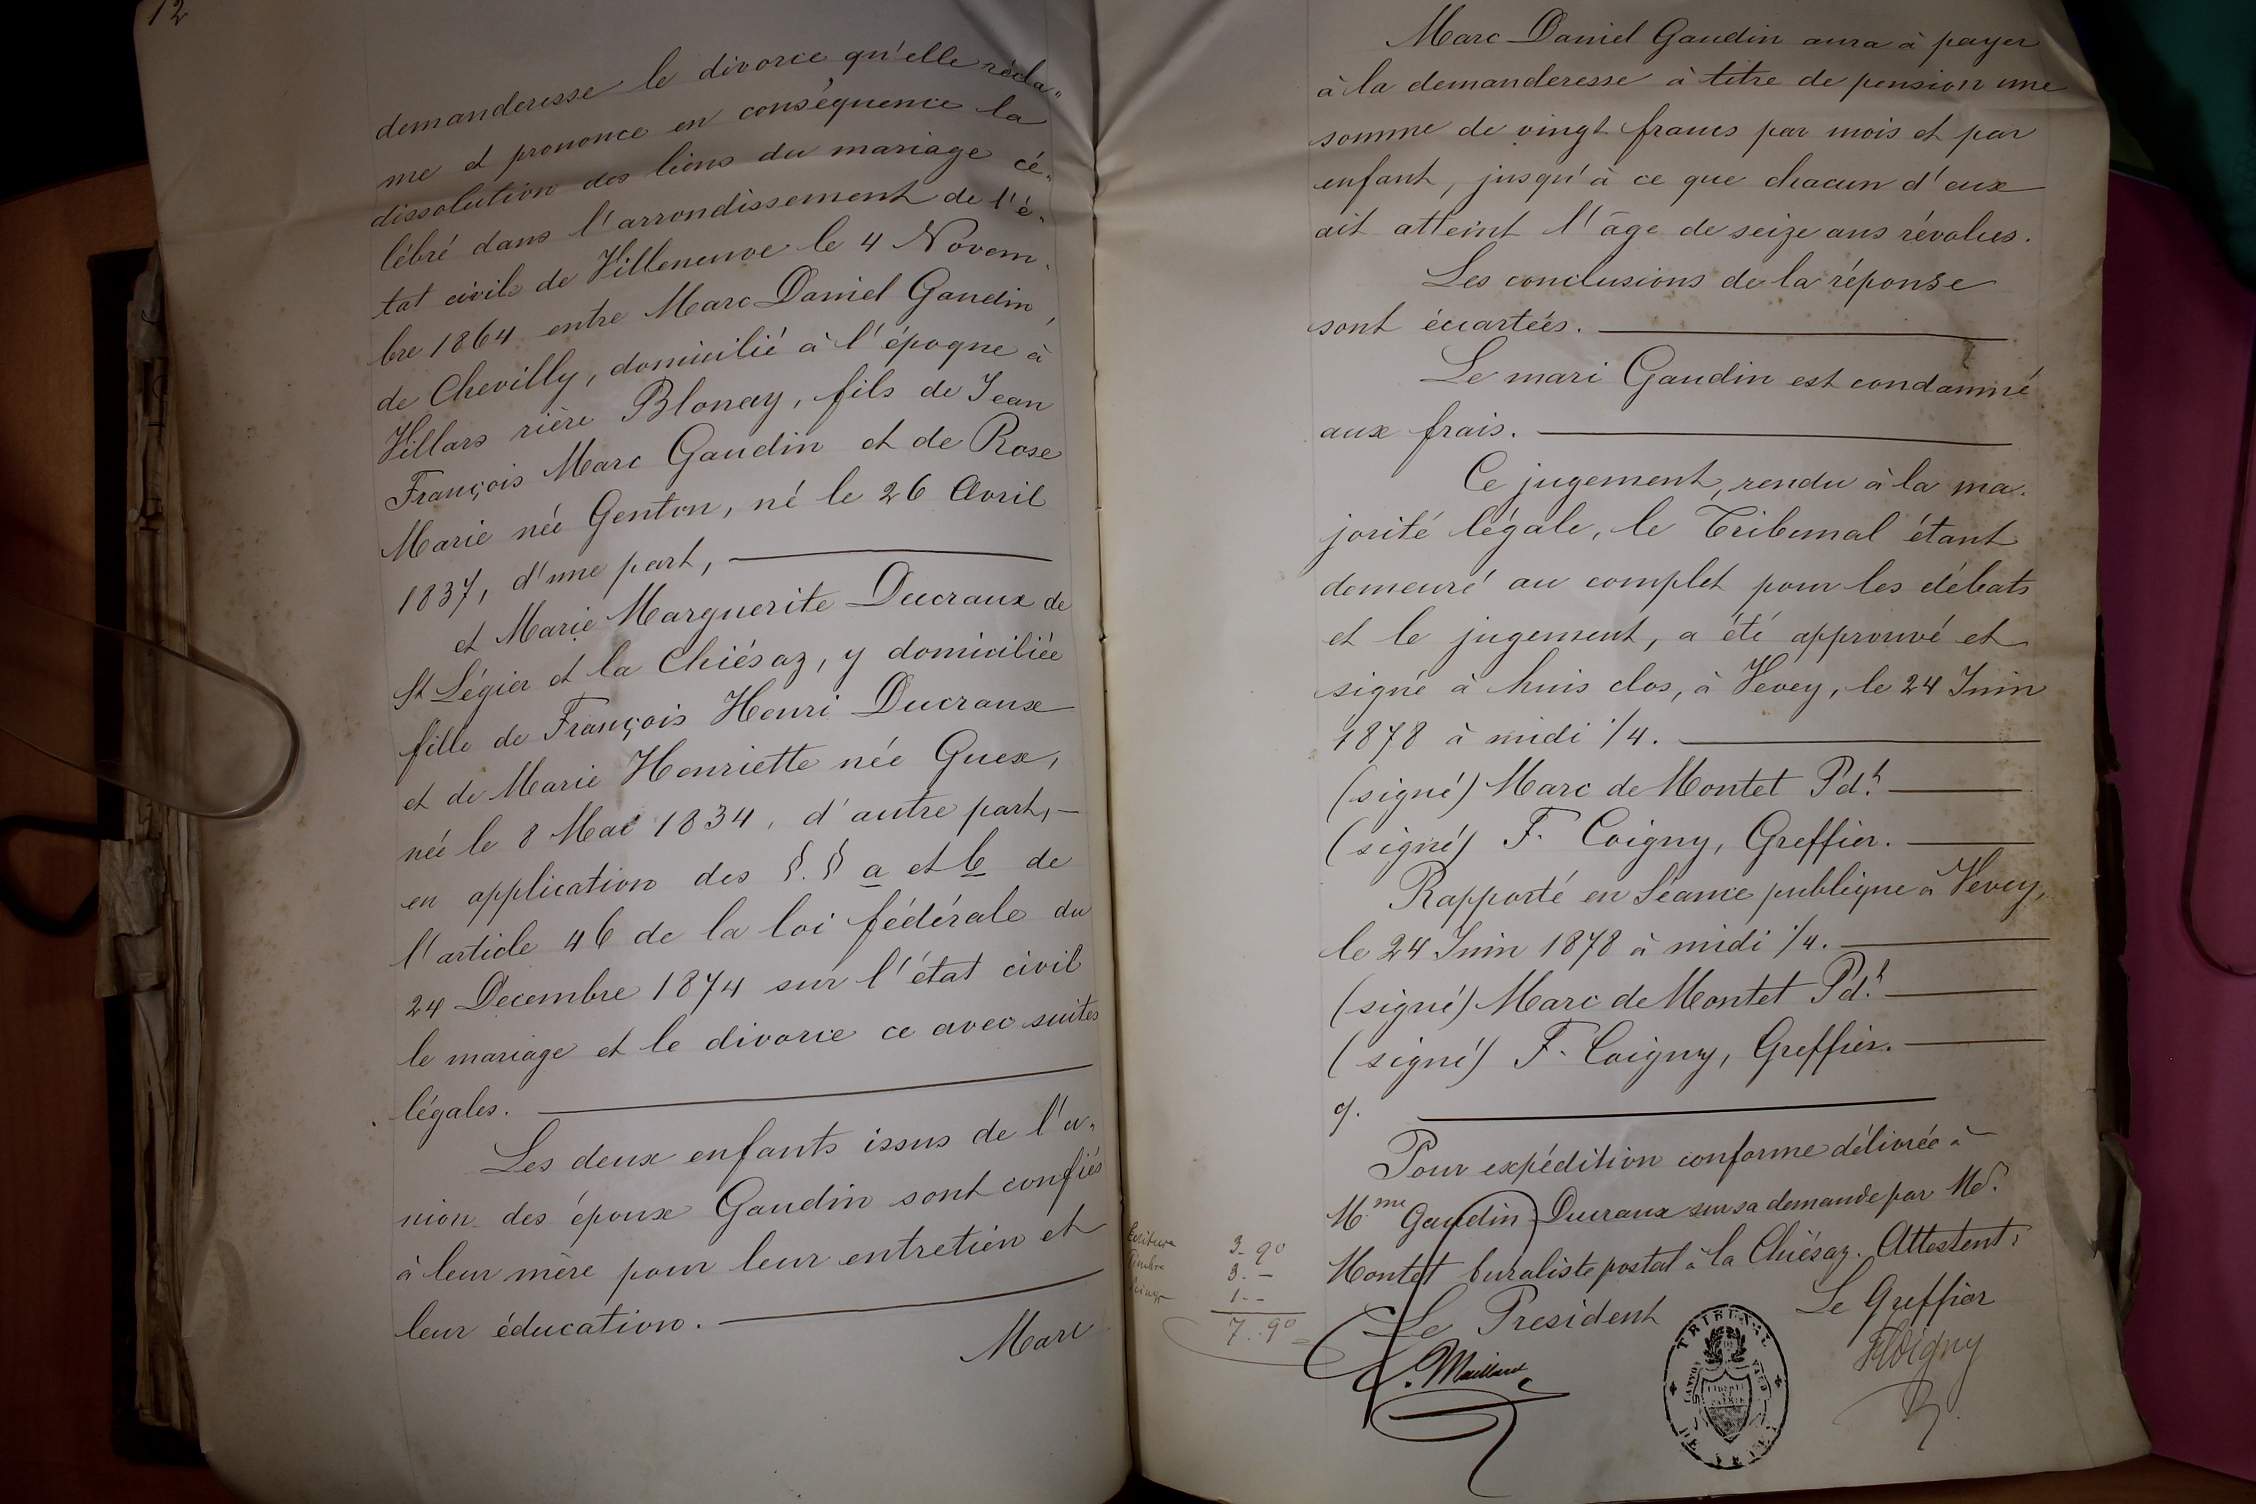 12
demanderesse le divorce qu'elle récla„
me et prononce en conséquence la
dissolution des liens du mariage cé„
lébré dans l'arrondissement de l'é„
tat civil de Villeneuve le 4 Novem„
bre 1864 entre Marc Daniel Gaudin,
de Chevilly, domicilié à l'époque à
Villars rière Blonay, fils de Jean
François Marc Gaudin et de Rose
Marie née Genton, né le 26 Avril
1837, d'une part,
et Marie Marguerite Ducraux de
St Légier et la Chiésaz, y domiciliée
fille de François Henri Ducraux
et de Marie Henriette née Guex,
née le 8 Mai 1834, d'autre part,
en application des §.§ a et b de
l'article 46 de la loi fédérale du
24 Decembre 1874 sur l'état civil
le mariage et le divorce ce avec suites
légales.
Les deux enfants issus de l'u„
nion des époux Gaudin sont confiés
à leur mère pour leur entretien et
leur éducation.
Marc
Marc Daniel Gaudin aura à payer
à la demanderesse à titre de pension une
somme de vingt francs par mois et par
enfant, jusqu'à ce que chacun d'eux
ait atteint l'âge de seize ans révolus.
Les conclusions de la réponse
sont écartées.
Le mari Gaudin est condamné
aux frais.
Ce jugement, rendu à la ma„
jorité légale, le Tribunal étant
demeuré au complet pour les débats
et le jugement, a été approuvé et
signé à huis clos, à Vevey, le 24 Juin
1878 à midi 1/4.
(signé) Marc de Montet Pdt
(signé) F. Coigny, Greffier.
Rapporté en Séance publique à Vevey,
le 24 Juin 1878 à midi 1/4.
(signé) Marc de Montet Pdt
(signé) F. Coigny, Greffier.
Pour expédition conforme délivrée à
Mme Gaudin Ducraux sur sa demande par Mr.
Montet buraliste postal à la Chiésaz. Attestent,
Ecriture 3.90
Timbre 3.-
1.-
7.90
Le President
Le Greffier
Maillard
F Coigny
TRIBUNAL
CANTON VAUD
LIBERTÉ
PATRIE
DE VEVEY